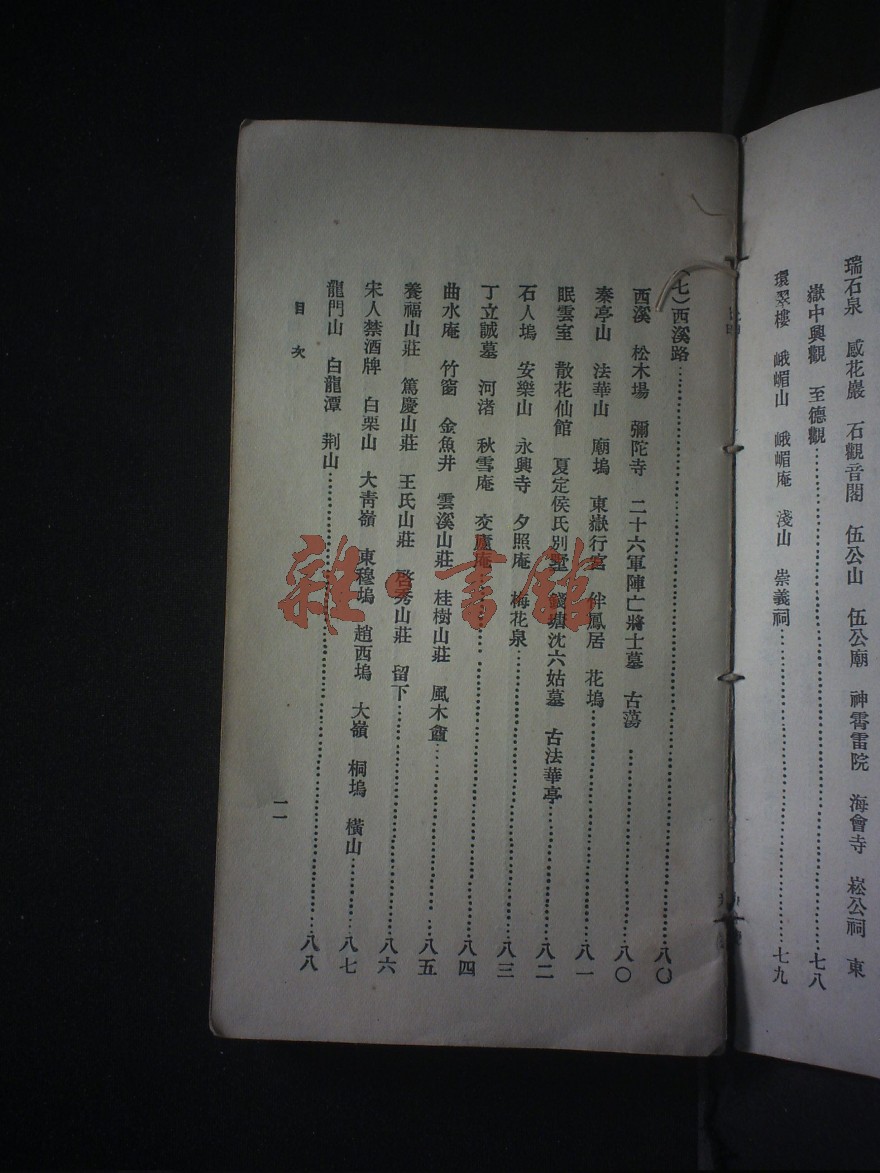 瑞石泉　感花巖　石觀音閣　伍公山　伍公廟　神霄雷院　海會寺　崧公祠　東
嶽中興觀　至德觀……七八
環翠樓　峨嵋山　峨嵋庵　淺山　崇義祠……七九
(七)西溪路……八〇
西溪　松木場　彌陀寺　二十六軍陣亡將士墓　古蕩……八〇
秦亭山　法華山　廟塢　東嶽行宮　伴鳳居　花塢……八一
眠雲室　散花仙館　夏定侯氏別墅　錢塘沈六姑墓　古法華亭……八二
石人塢　安樂山　永興寺　夕照庵　梅花泉……八三
丁立誠墓　河渚　秋雪庵　交廬庵……八四
曲水庵　竹窗　金魚井　雲溪山莊　桂樹山莊　風木盦……八五
養福山莊　篤慶山莊　王氏山莊　啓秀山莊　留下……八六
宋人禁酒牌　白栗山　大青嶺　東穆塢　趙西塢　大嶺　桐塢　橫山……八七
龍門山　白龍潭　荆山……八八
目次
一一
雜·書館